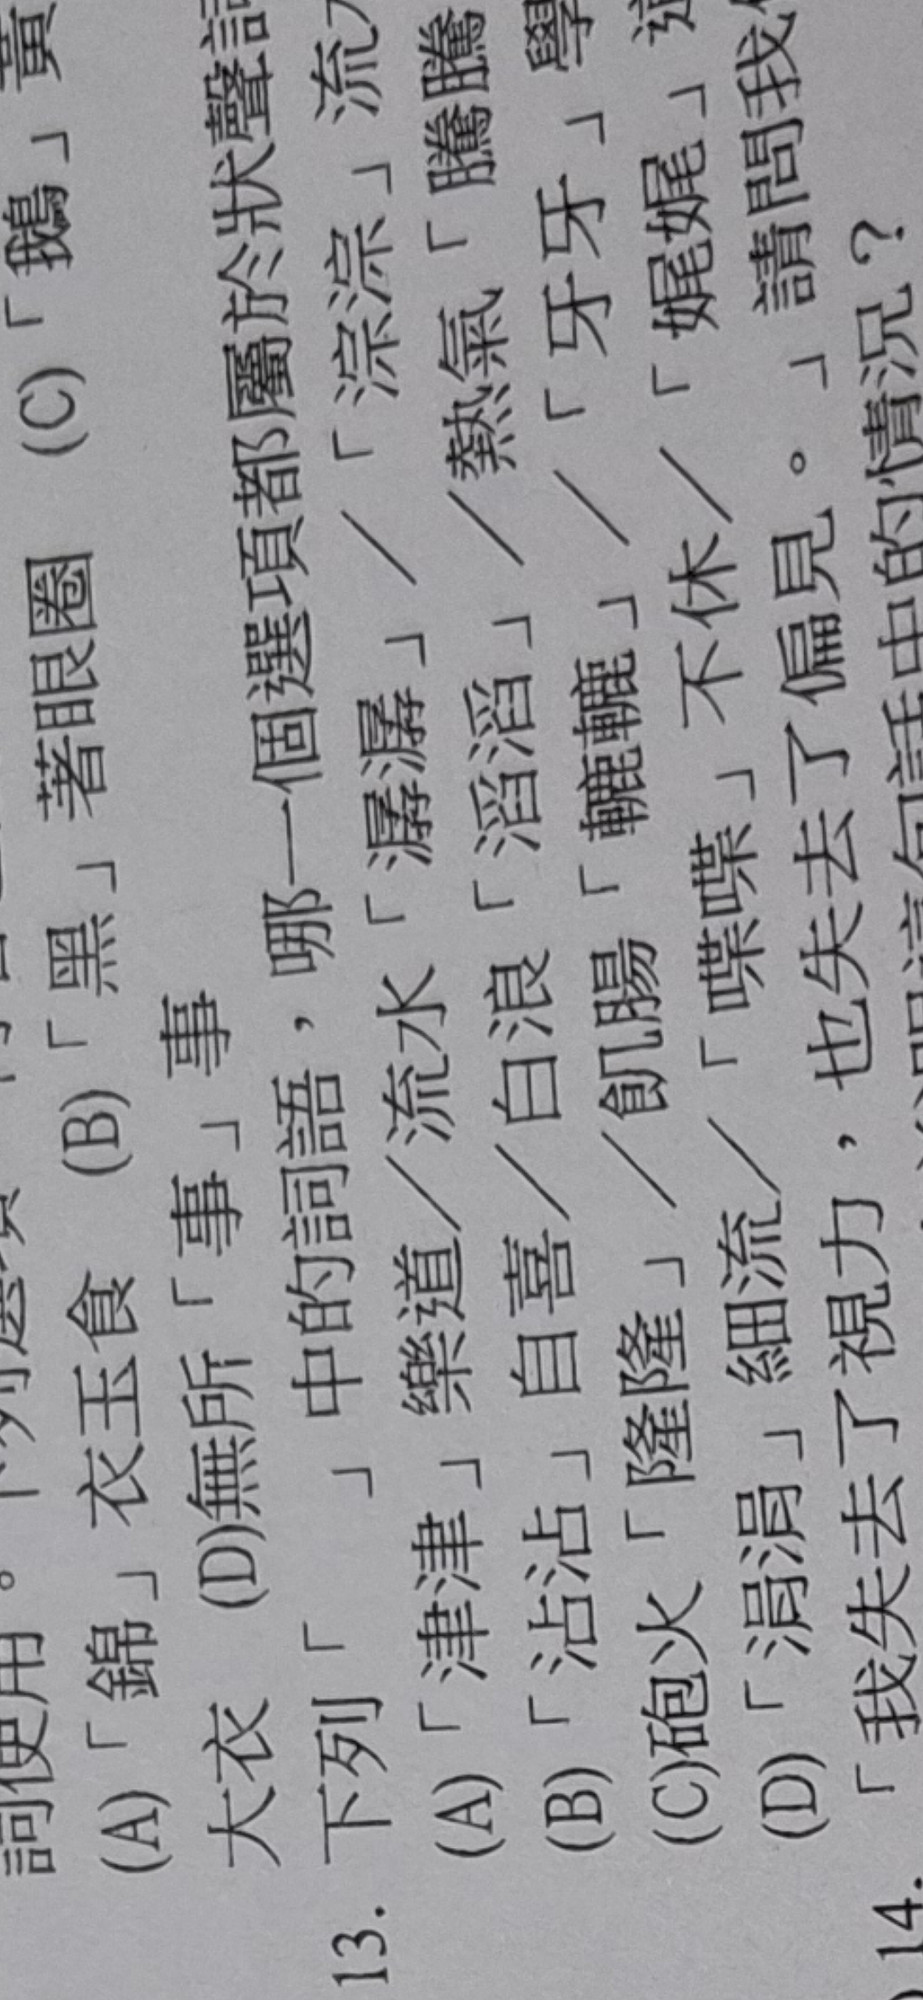 詞使用。下列選項
(A)「錦」衣玉食 (B)「黑」著眼圈 (C)「鵝」黃
大衣 (D)無所「事」事
13. 下列「 」中的詞語，哪一個選項都屬於狀聲詞
(A)「津津」樂道／流水「潺潺」／「淙淙」流水
(B)「沾沾」自喜／白浪「滔滔」／熱氣「騰騰
(C)砲火「隆隆」／飢腸「轆轆」／「牙牙」學
(D)「涓涓」細流／「喋喋」不休／「娓娓」道
14. 「我失去了視力，也失去了偏見。」請問我
這句話中的情況？